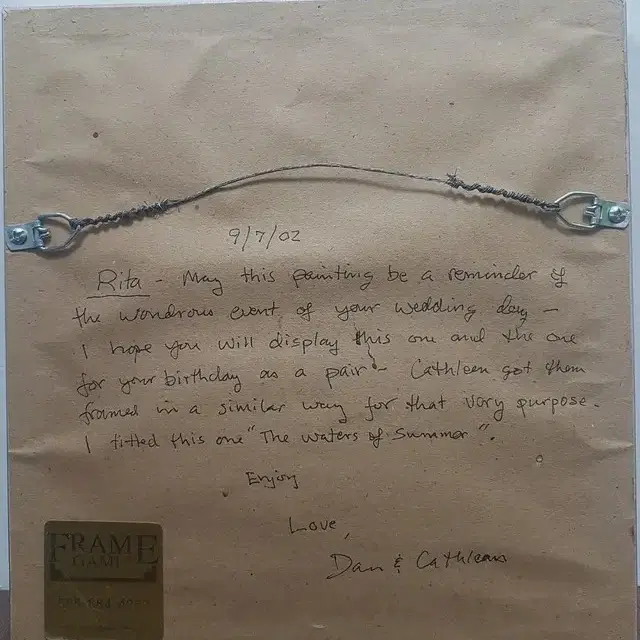 9/7/02
Rita - May this painting be a reminder of
the wondrous event of your wedding day -
I hope you will display this one and the one
for your birthday as a pair - Cathleen got them
framed in a similar way for that very purpose.
I titled this one "The waters of Summer".
Enjoy
Love,
Dan & Cathleen
FRAME
GAME